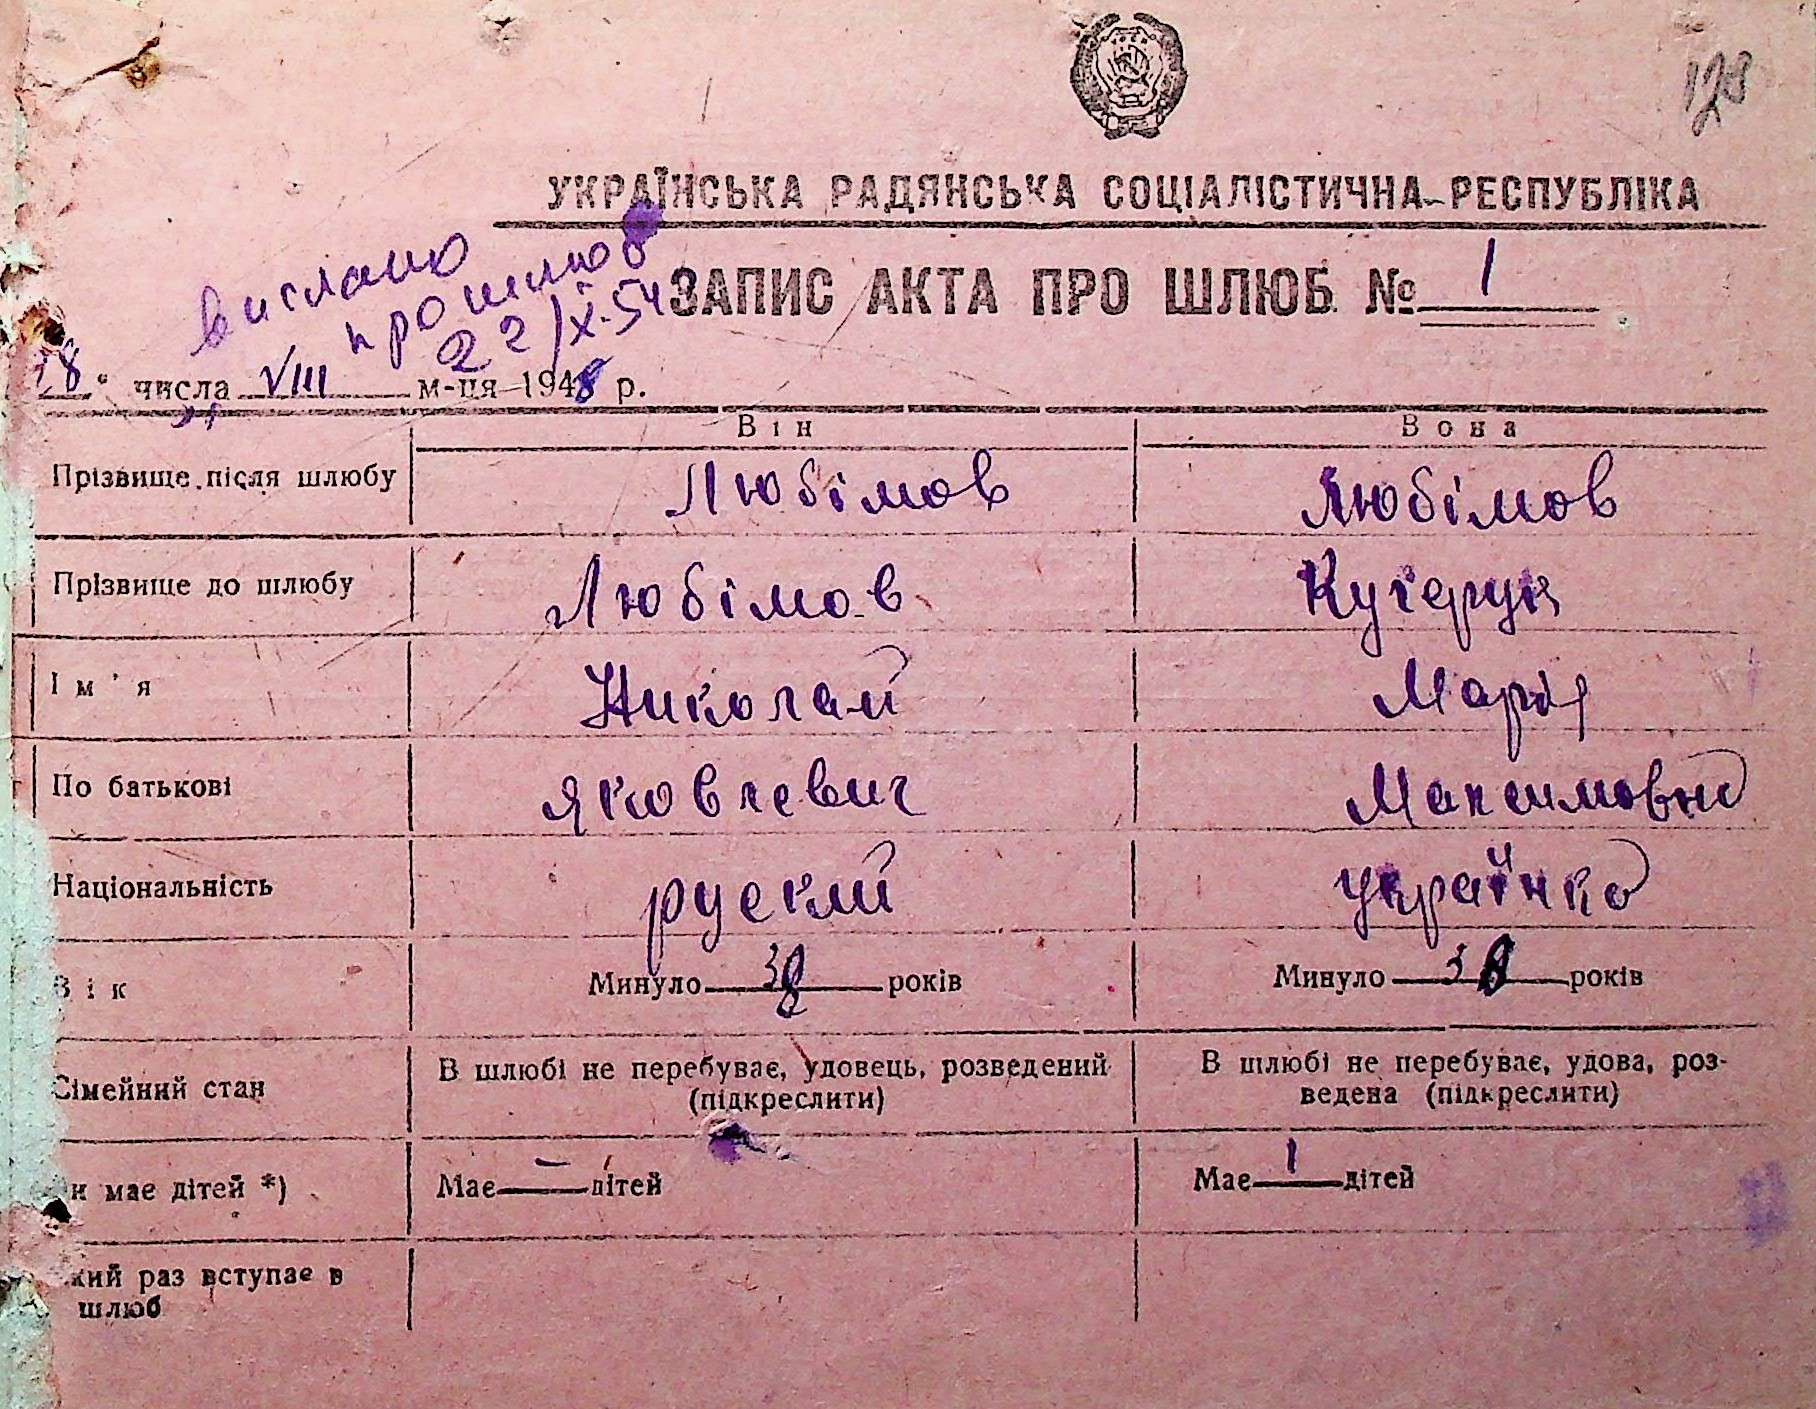 128
УКРАЇНСЬКА РАДЯНСЬКА СОЦІАЛІСТИЧНА РЕСПУБЛІКА
вислано
про шлюб
22/X-54
ЗАПИС АКТА ПРО ШЛЮБ № 1
28 числа VIII м-ця 1948 р.
Він Вона
Прізвище після шлюбу Любімов Любімов
Прізвище до шлюбу Любімов Кучерук
Ім'я Николай Марія
По батькові Яковлевич Максимовна
Національність руский українка
Вік Минуло 38 років Минуло 38 років
Сімейний стан В шлюбі не перебуває, удовець, розведений (підкреслити) В шлюбі не перебуває, удова, роз-
ведена (підкреслити)
и має дітей *) Має — дітей Має 1 дітей
кий раз вступає в
шлюб